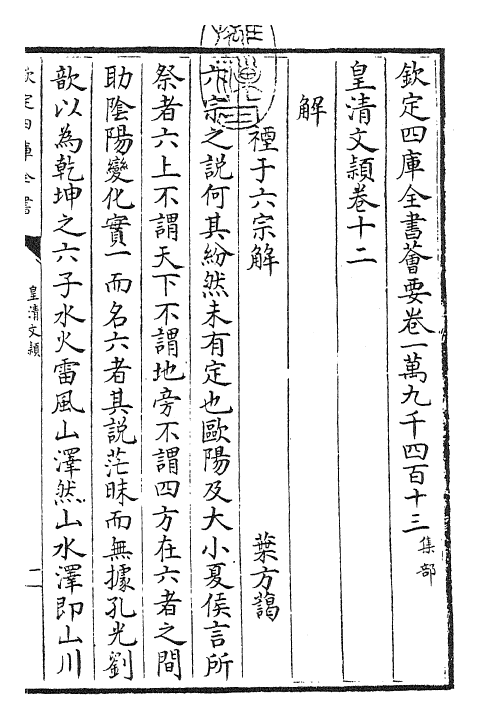 欽定四庫全書薈要卷一萬九千四百十三 集部
皇清文穎卷十二
解
禋于六宗解 葉方藹
六宗之說何其紛然未有定也歐陽及大小夏侯言所
祭者六上不謂天下不謂地旁不謂四方在六者之間
助陰陽變化實一而名六者其說茫昧而無據孔光劉
歆以為乾坤之六子水火雷風山澤然山水澤即山川
欽定四庫全書
皇清文穎